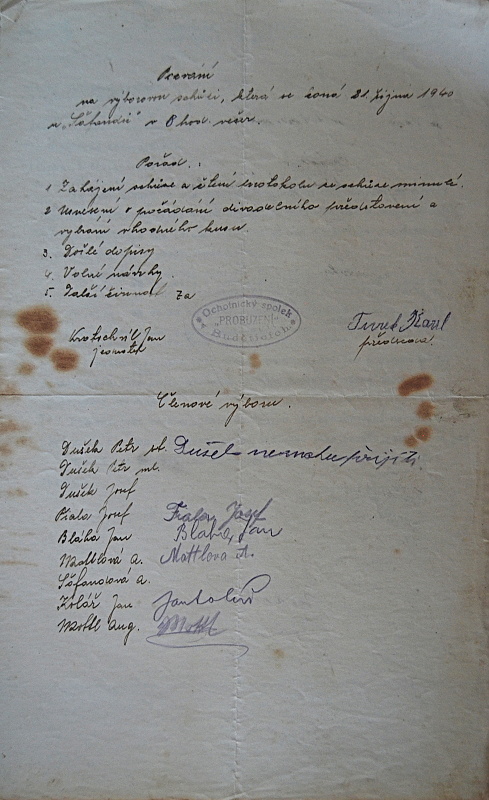 Pozvání
na výborovou schůzi, která se koná 21. října 1940
u „Šafandů" v 8 hod. večer.
Pořad :
1. Zahájení schůze a čtení protokolu ze schůze minulé.
2. Usnesení o pořádání divadelního představení a
vybrání vhodného kusu.
3. Došlé dopisy
4. Volné návrhy.
5. Další činnost
Za
Ochotnický spolek
„PROBUZENÍ"
Jan
jednatel
Turek Karel
předseda.
Členové výboru.
Dušek Petr st. Dušek nemohu přijíti
Dušek Petr ml.
Dušek Josef
Fiala Josef Fiala Josef
Bláha Jan Bláha Jan
Mottlová A. Mottlova A.
Šafandová A.
Kolář Jan. Jan Kolář
Mottl Aug. Mottl